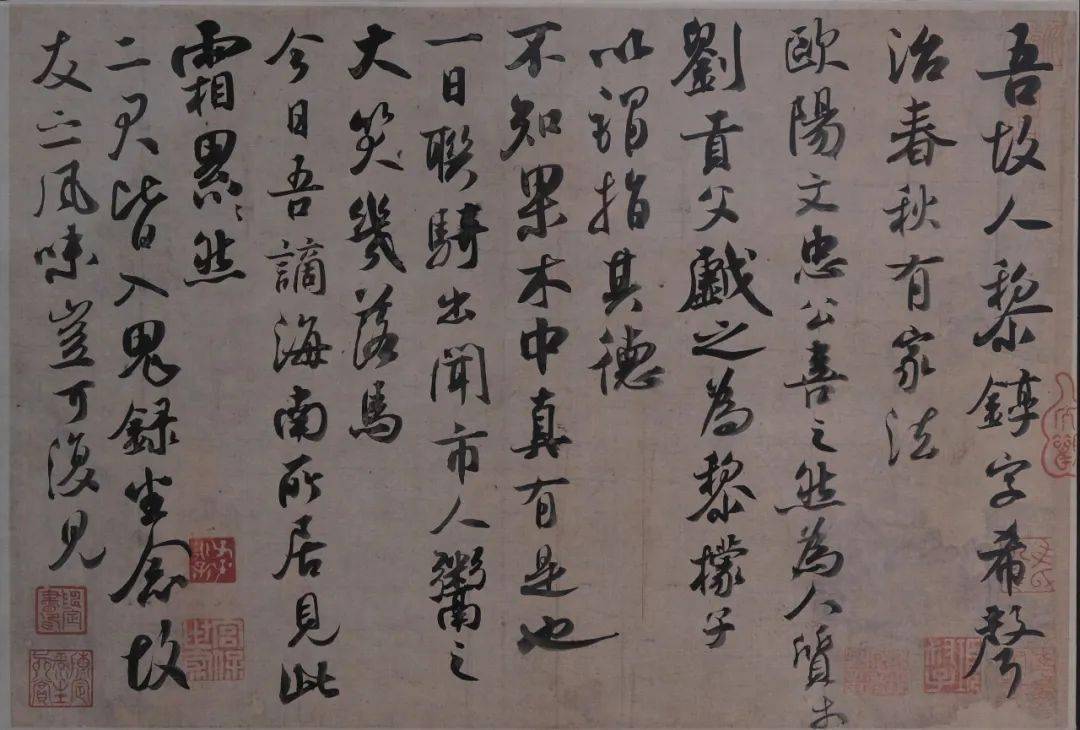 吾故人黎錞字希聲
治春秋有家法
歐陽文忠公喜之然為人質木
劉貢父戲之為黎檬子
以謂指其德
不知果木中真有是也
一日聯騎出聞市人鬻之
大笑幾落馬
今日吾謫海南所居見此
霜累累然
二君皆入鬼録坐念故
友之風味豈可復見